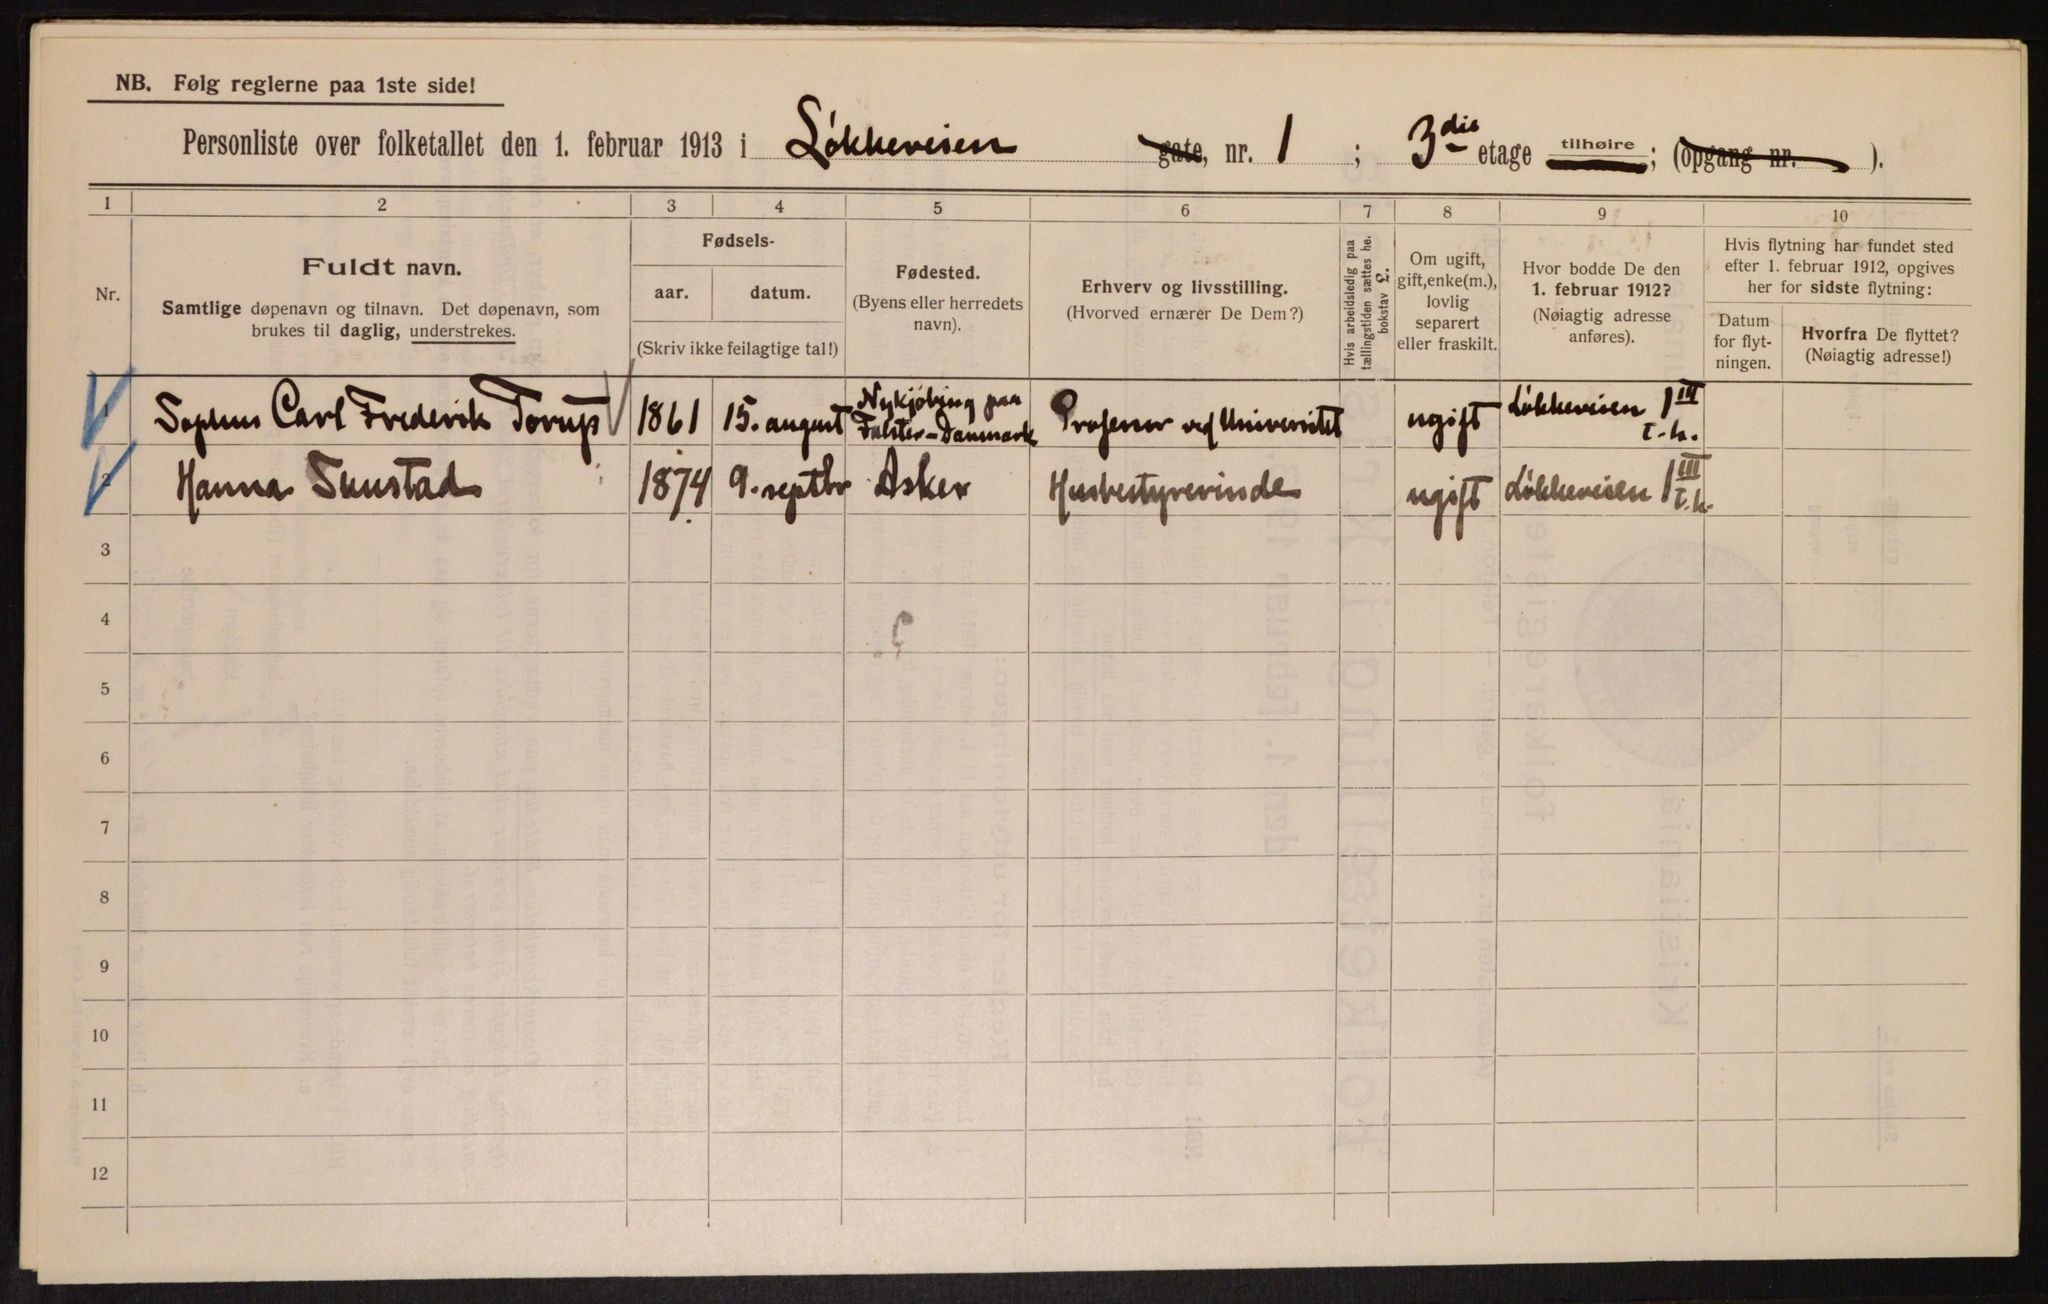 NB. Følg reglerne paa 1ste side!
Personliste over folketallet den 1. februar 1913 i Løkkeveien gate, nr. 1 ; 3die etage tilhøire ; (opgang nr. ).
1 2 3 4 5 6 7 8 9 10
Nr.
Fuldt navn.
Samtlige døpenavn og tilnavn. Det døpenavn, som
brukes til daglig, understrekes.
Fødsels-
aar. datum.
(Skriv ikke feilagtige tal!)
Fødested.
(Byens eller herredets
navn).
Erhverv og livsstilling.
(Hvorved ernærer De Dem?)
Hvis arbeidsledig paa
tællingstiden sættes he.
bokstav L.
Om ugift,
gift, enke(m.),
lovlig
separert
eller fraskilt.
Hvor bodde De den
1. februar 1912?
(Nøiagtig adresse
anføres).
Hvis flytning har fundet sted
efter 1. februar 1912, opgives
her for sidste flytning:
Datum
for flyt-
ningen.
Hvorfra De flyttet?
(Nøiagtig adresse!)
1 Sophus Carl Frederik Torup 1861 15. august Nykjøbing paa
Falster-Danmark Professor ved Universitet ugift Løkkeveien 1 III
t.h.
2 Hanna 1874 9. septbr Asker Husbestyrerinde ugift Løkkeveien 1 III
t.h.
3
4
5
6
7
8
9
10
11
12